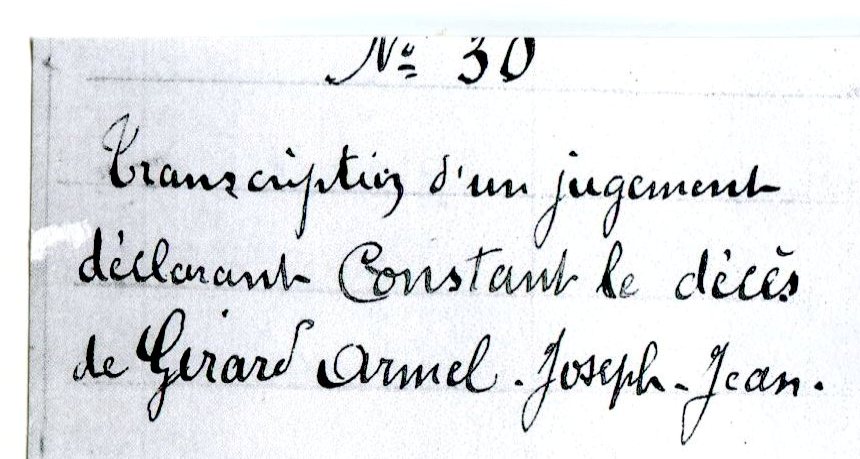 Nº 30
Transcription d'un jugement
déclarant Constant le décès
de Gérard Armel - Joseph - Jean.